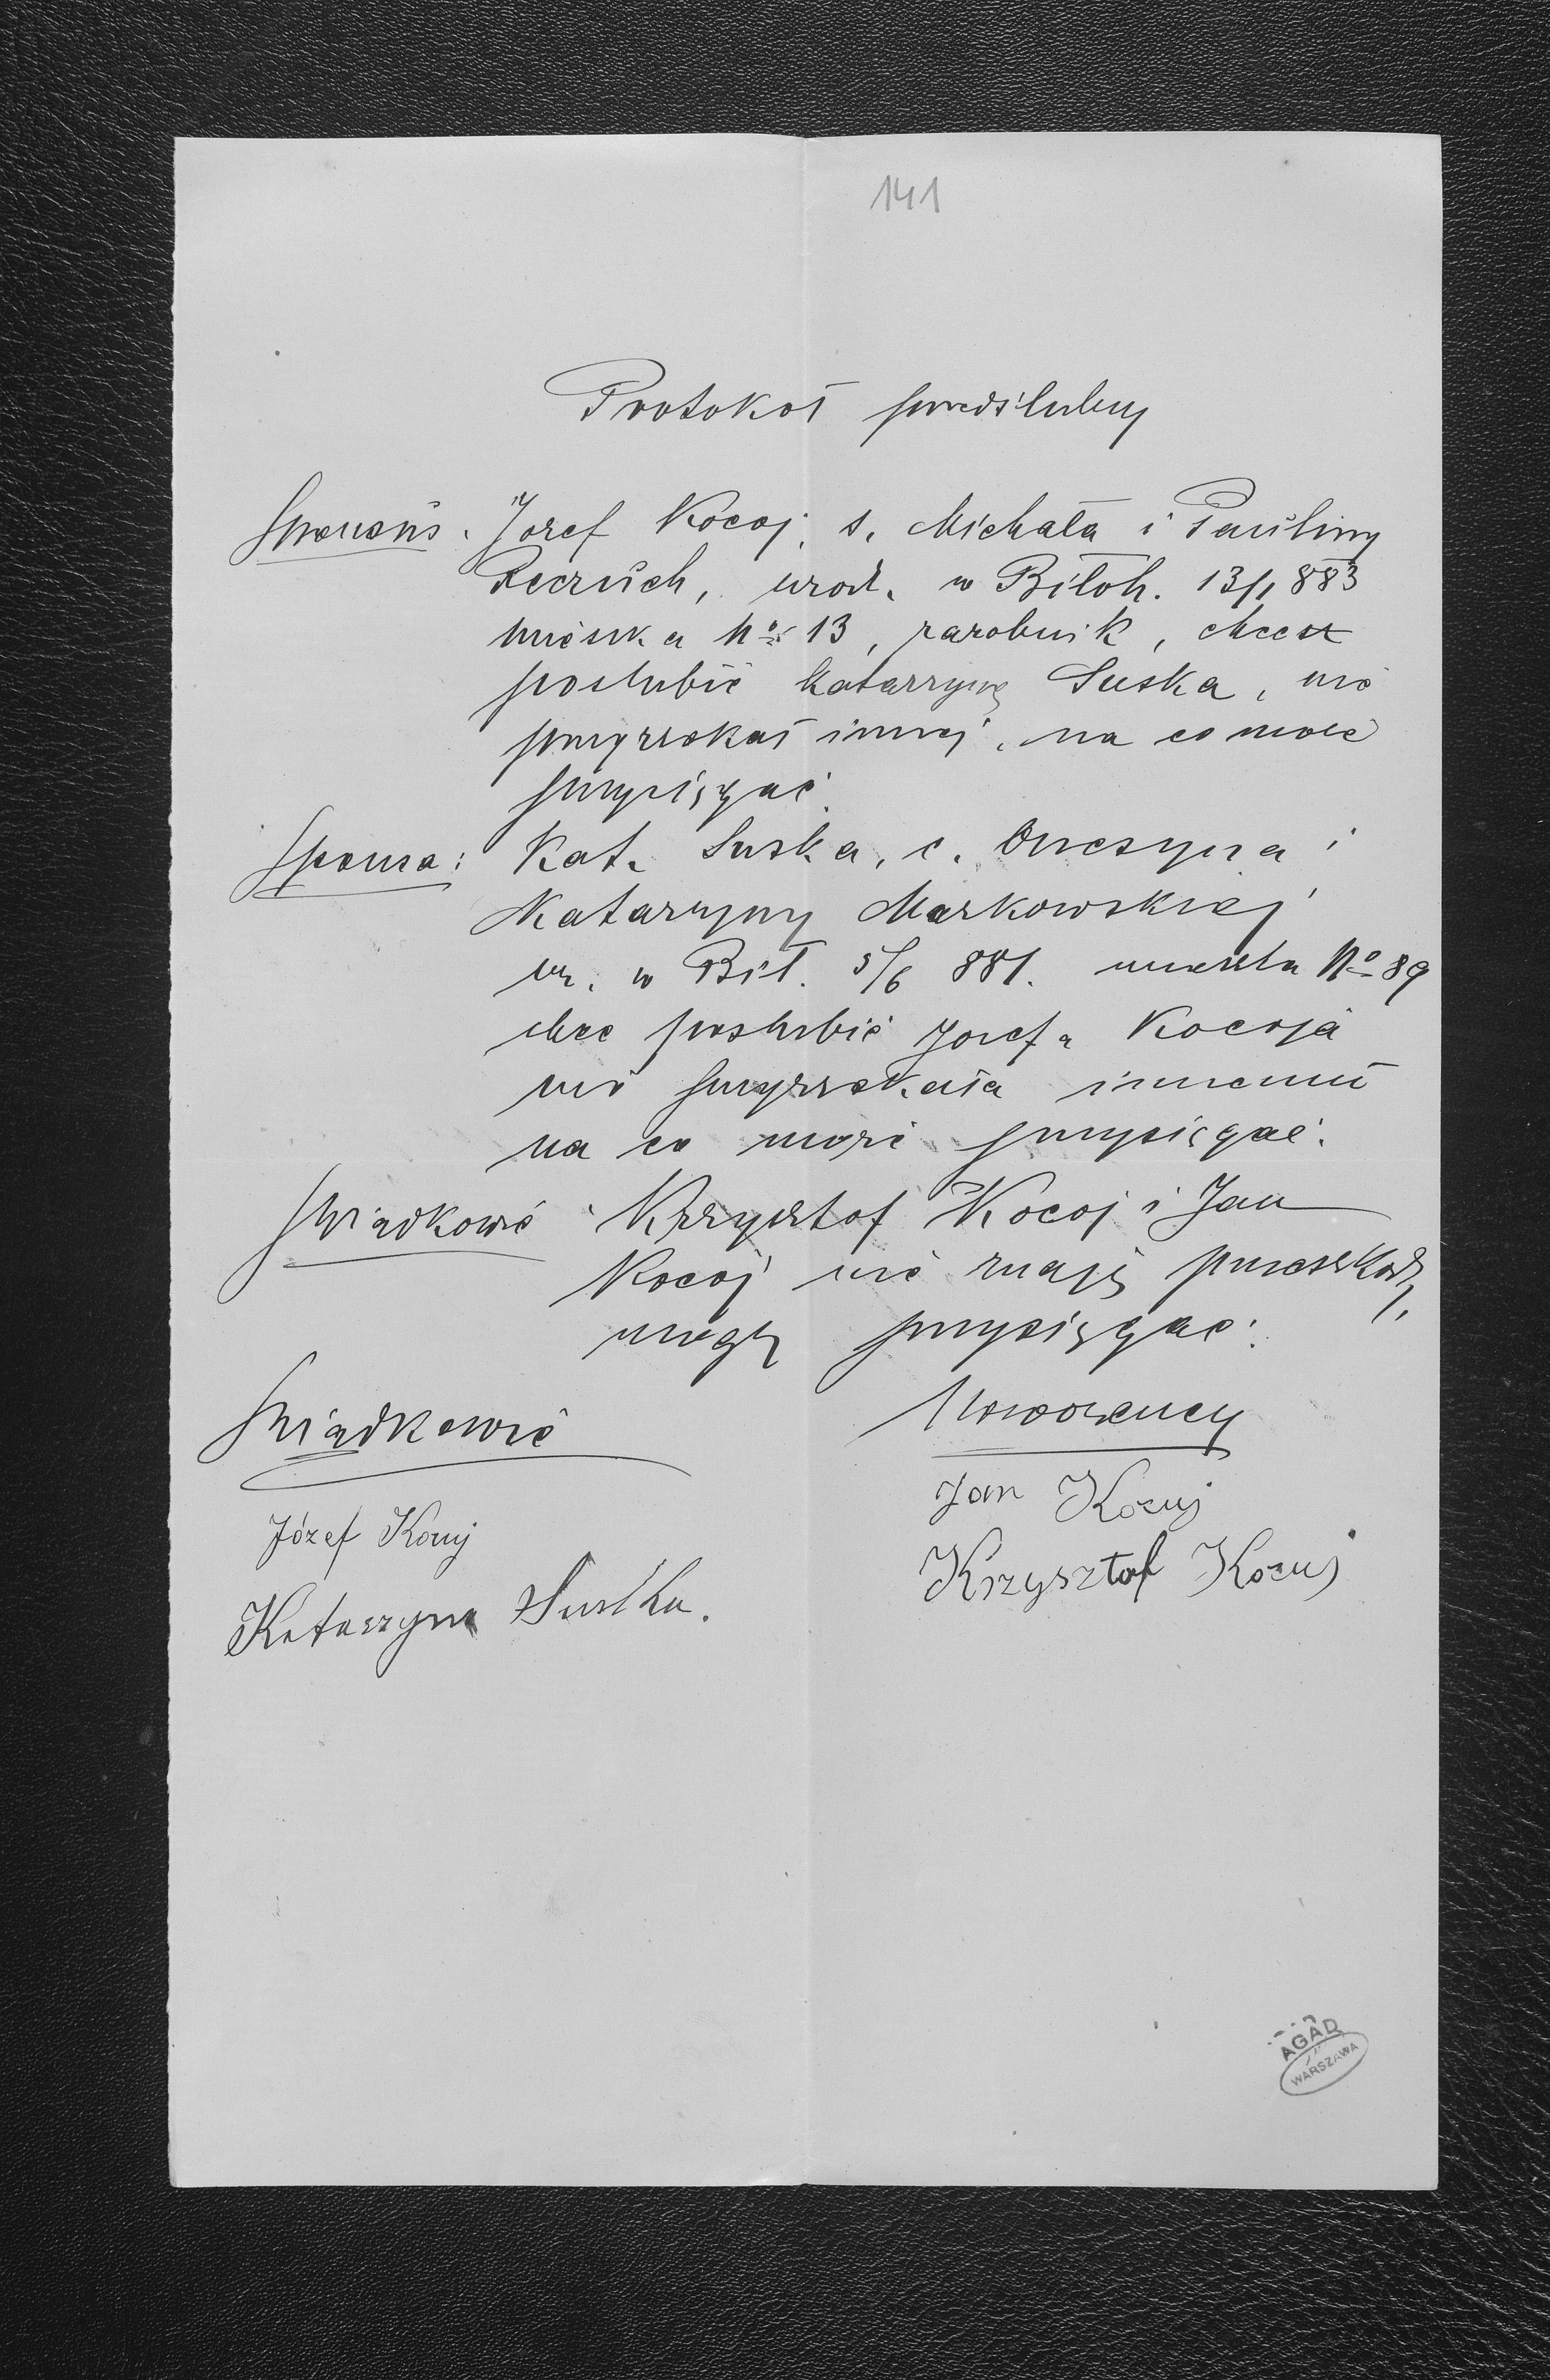 141
Protokoł przedślubny
Sponsus. Jozef Kocoj, s. Michała i Pauliny
Reczuch, urod. w Biłoh. 13/1 883
mieszka No 13, zarobnik, chce
poslubić Katarzynę Suska, nie
przyrzekał innej, na co może
przysięgać.
Sponsa: Kat. Suska, c. Onesyma i
Katarzyny Markowskiej
ur. w Bił. 5/6 881. mieszka No 89
chce poslubić Jozefa Kocoja
nie przyrzekała innemu
na co może przysięgać.
Swiadkowie Krzysztof Kocoj i Jan
Kocoj nie znają przeszkody,
mogą przysięgac.
Swiadkowie Nowożency
Józef Kocuj Jan Kocuj
Katarzyna Suska. Krzysztof Kocuj
AGAD
WARSZAWA